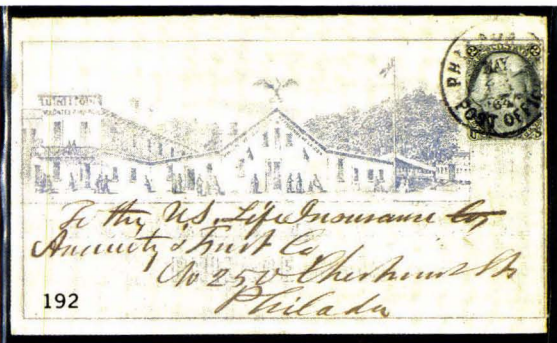 PHILADA
MAY
'64
POST OFFIC
To the U.S. Life Insurance Co,
Annuity & Trust Co
No 250 Chestnut St
Philada
192